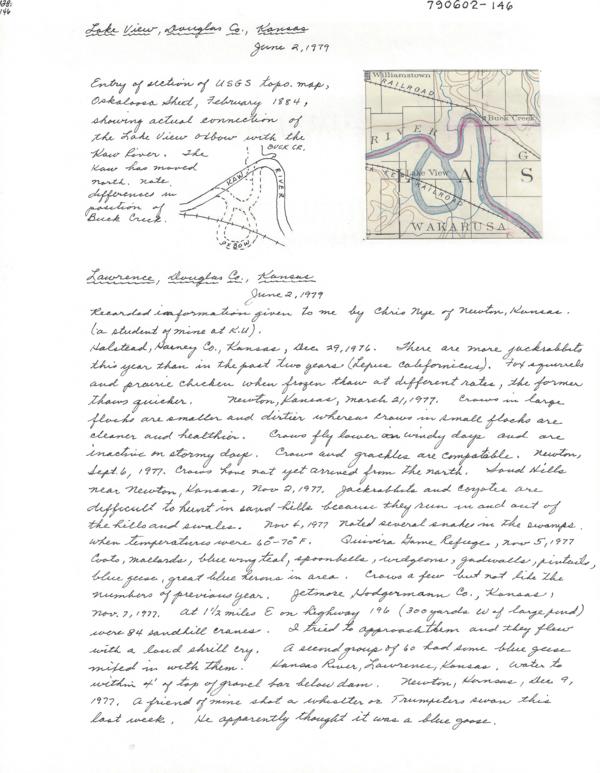 790602-146
Lake View, Douglas Co., Kansas
June 2, 1979
Entry of section of USGS topo. map,
Oskaloosa Sheet, February 1884,
showing actual connection of
the Lake View Oxbow with the
Kaw River. The
Kaw has moved
north. Note
differences in
position of
Buck Creek.
BUCK CR.
KAW RIVER
OXBOW
Williamstown
RAILROAD
Buck Creek
RIVER
G
Lake View
L A S
RAILROAD
WAKARUSA
Lawrence, Douglas Co., Kansas
June 2, 1979
Recorded information given to me by Chris Nye of Newton, Kansas.
(a student of mine at K.U).
Halstead, Harney Co., Kansas, Dec 29, 1976. There are more jackrabbits
this year than in the past two years (Lepus californicus). Fox squirrels
and prairie chicken when frozen thaw at different rates, the former
thaws quicker. Newton, Kansas, March 21, 1977. Crows in large
flocks are smaller and dirtier whereas crows in small flocks are
cleaner and healthier. Crows fly lower on windy days and are
inactive on stormy days. Crows and grackles are compatable. Newton,
Sept. 6, 1977. Crows have not yet arrived from the north. Sand Hills
near Newton, Kansas, Nov 2, 1977. Jackrabbits and coyotes are
difficult to hunt in sand hills because they run in and out of
the hills and swales. Nov 6, 1977 Noted several snakes in the swamps.
when temperatures were 60°-70° F. Quivira Game Refuge, Nov 5, 1977
Coots, mallards, blue wing teal, spoonbills, widgeons, gadwalls, pintails,
blue geese, great blue herons in area. Crows a few but not like the
numbers of previous year. Jetmore Hodgermann Co., Kansas,
Nov. 7, 1977. At 1 1/2 miles E on highway 196 (300 yards W of large pond)
were 84 sandhill cranes. I tried to approach them and they flew
with a loud shrill cry. A second group of 60 had some blue geese
mixed in with them. Kansas River, Lawrence, Kansas. Water to
within 4' of top of gravel bar below dam. Newton, Kansas, Dec 9,
1977. A friend of mine shot a whistler or Trumpeters swan this
last week. He apparently thought it was a blue goose.